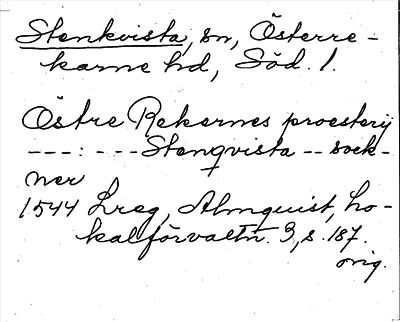 Stenkvista, sn, Österre-
karne hd, Söd. l.
Östre Rekarnes proesterij
---:---Stenqvista -- sock-
ner
1544 Lreg, Almquist, Lo-
kalförvaltn. 3, s. 187.
orig.